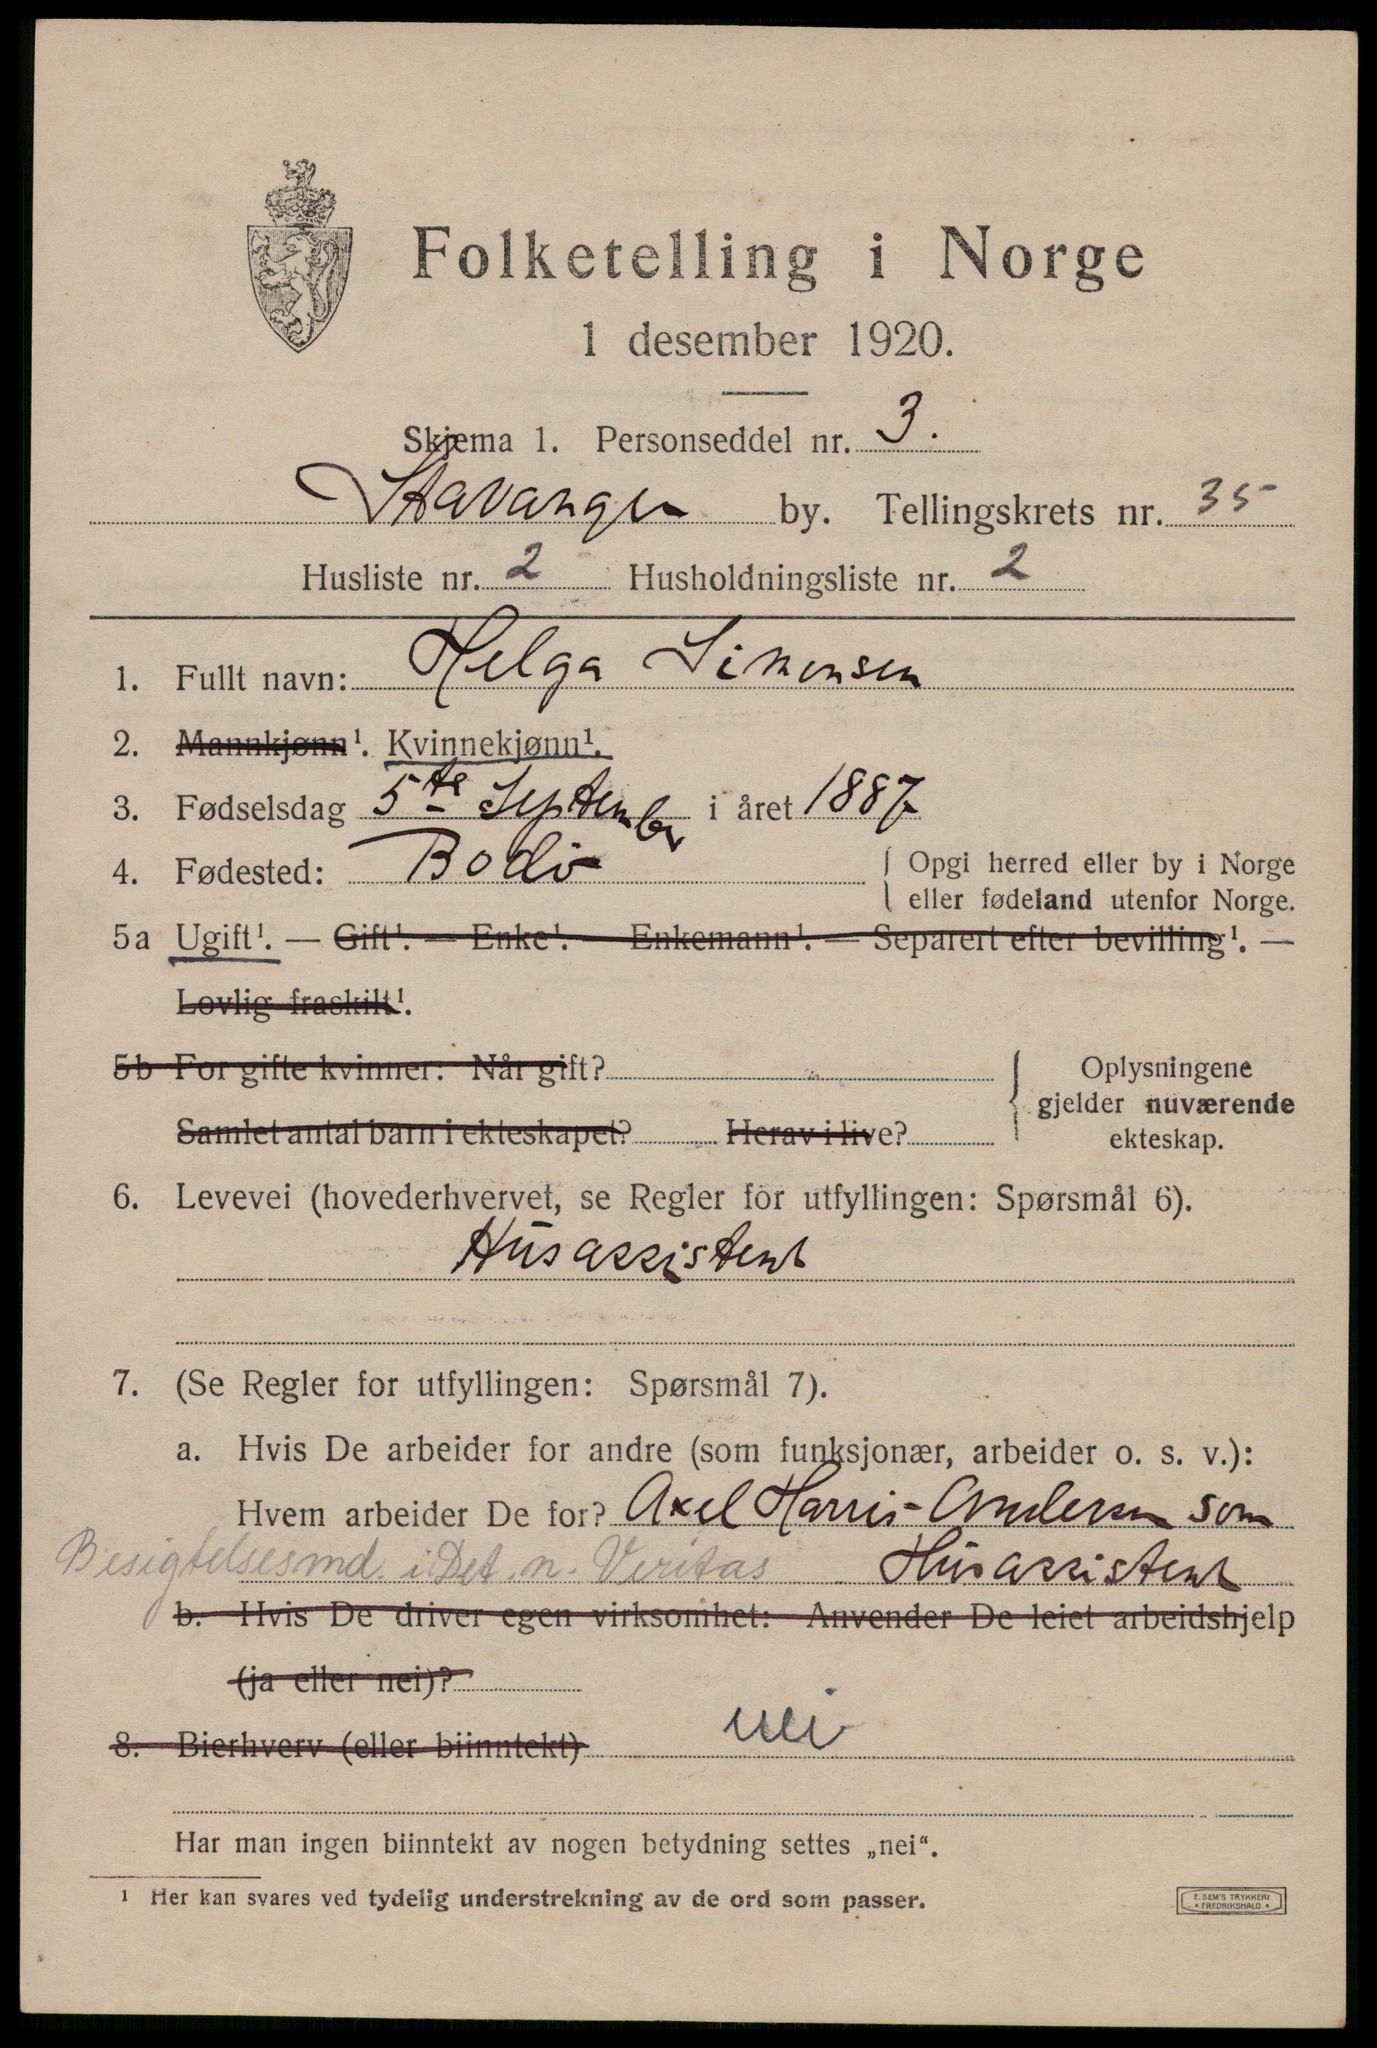 Folketelling i Norge
1 desember 1920.
Skjema 1. Personseddel nr. 3.
Stavanger by. Tellingskrets nr. 35
Husliste nr. 2 Husholdningsliste nr. 2
1. Fullt navn: Helga Simonsen
2. Mannkjønn¹. Kvinnekjønn¹.
3. Fødselsdag 5te September i året 1887
4. Fødested: Bodö { Opgi herred eller by i Norge
eller fødeland utenfor Norge.
5a Ugift¹. — Gift¹. — Enke¹. — Enkemann¹. — Separert efter bevilling¹. —
Lovlig fraskilt¹.
5b For gifte kvinner: Når gift? { Oplysningene
gjelder nuværende
Samlet antal barn i ekteskapet? Herav i live? ekteskap.
6. Levevei (hovederhvervet, se Regler for utfyllingen: Spørsmål 6).
Husassistent
7. (Se Regler for utfyllingen: Spørsmål 7).
a. Hvis De arbeider for andre (som funksjonær, arbeider o. s. v.):
Hvem arbeider De for? Axel Harris-Andersen som
Besigtelsesmd. i Det n. Veritas Husassistent
b. Hvis De driver egen virksomhet: Anvender De leiet arbeidshjelp
(ja eller nei)?
8. Bierhverv (eller biinntekt) nei
Har man ingen biinntekt av nogen betydning settes „nei“.
¹ Her kan svares ved tydelig understrekning av de ord som passer.
E. SEM'S TRYKKERI
* FREDRIKSHALD *